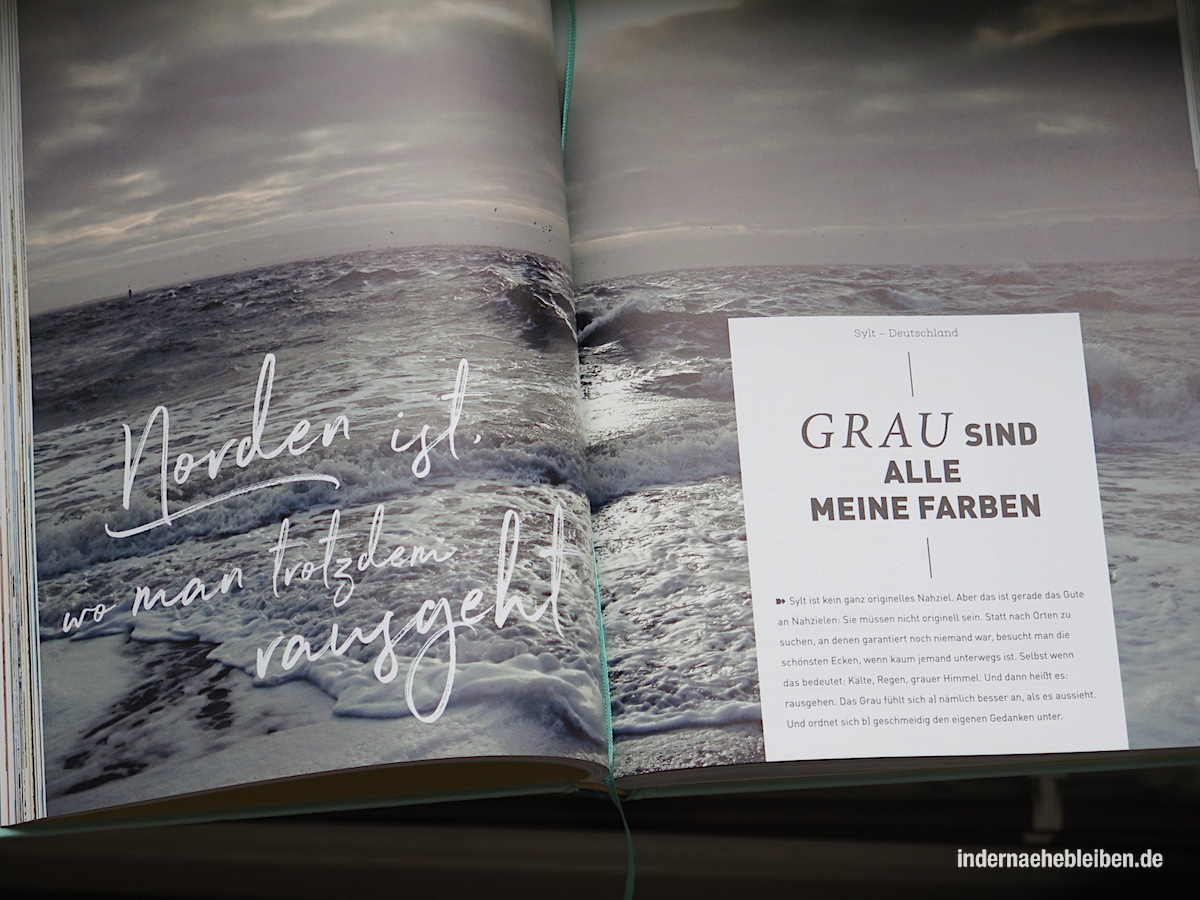 Norden ist,
wo man trotzdem
rausgeht
Sylt – Deutschland
GRAU SIND
ALLE
MEINE FARBEN
Sylt ist kein ganz originelles Nahziel. Aber das ist gerade das Gute
an Nahzielen: Sie müssen nicht originell sein. Statt nach Orten zu
suchen, an denen garantiert noch niemand war, besucht man die
schönsten Ecken, wenn kaum jemand unterwegs ist. Selbst wenn
das bedeutet: Kälte, Regen, grauer Himmel. Und dann heißt es:
rausgehen. Das Grau fühlt sich a) nämlich besser an, als es aussieht.
Und ordnet sich b) geschmeidig den eigenen Gedanken unter.
indernaehebleiben.de